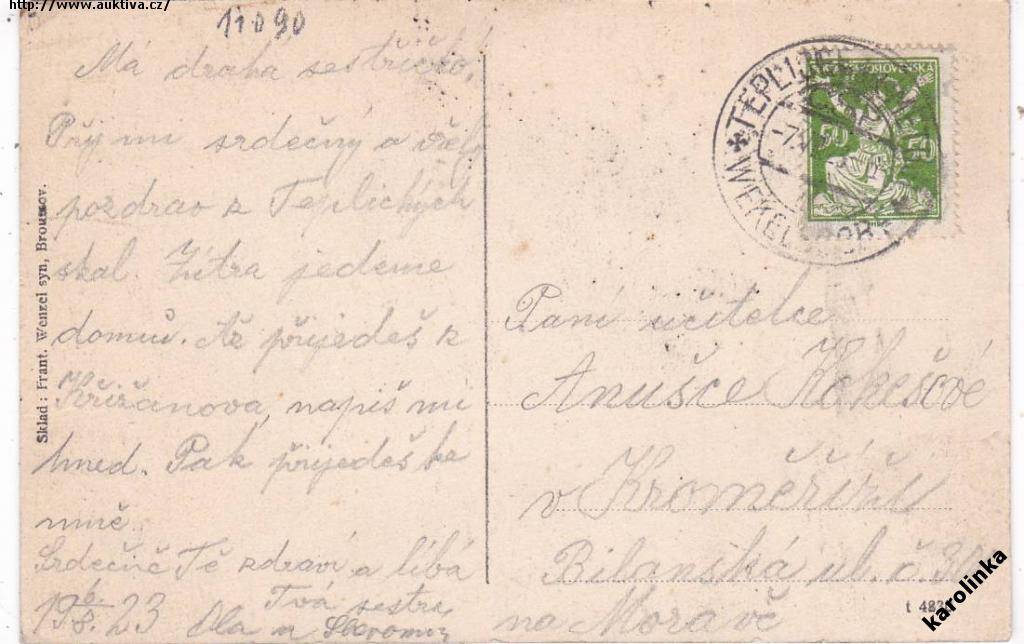 http://www.auktiva.cz/
11090
Má drahá sestřičko!
Přij mi srdečný a vřelý
pozdrav z Teplických
skal. Zítra jedeme
domů. Až přijedeš z
Křižanova, napiš mi
hned. Pak přijedeš ke
mně.
Srdečně Tě zdraví a líbá
Tvá sestra
19 6/8. 23 Ola a
Sklad: Frant. Wenzel syn, Broumov.
ČESKOSLOVENSKA
50 50
TEPLICE
WEKELSDORF
Paní učitelce
Anušce Kokešové
v Kroměříži
Bilanská ul. č.
na Moravě
karolinka